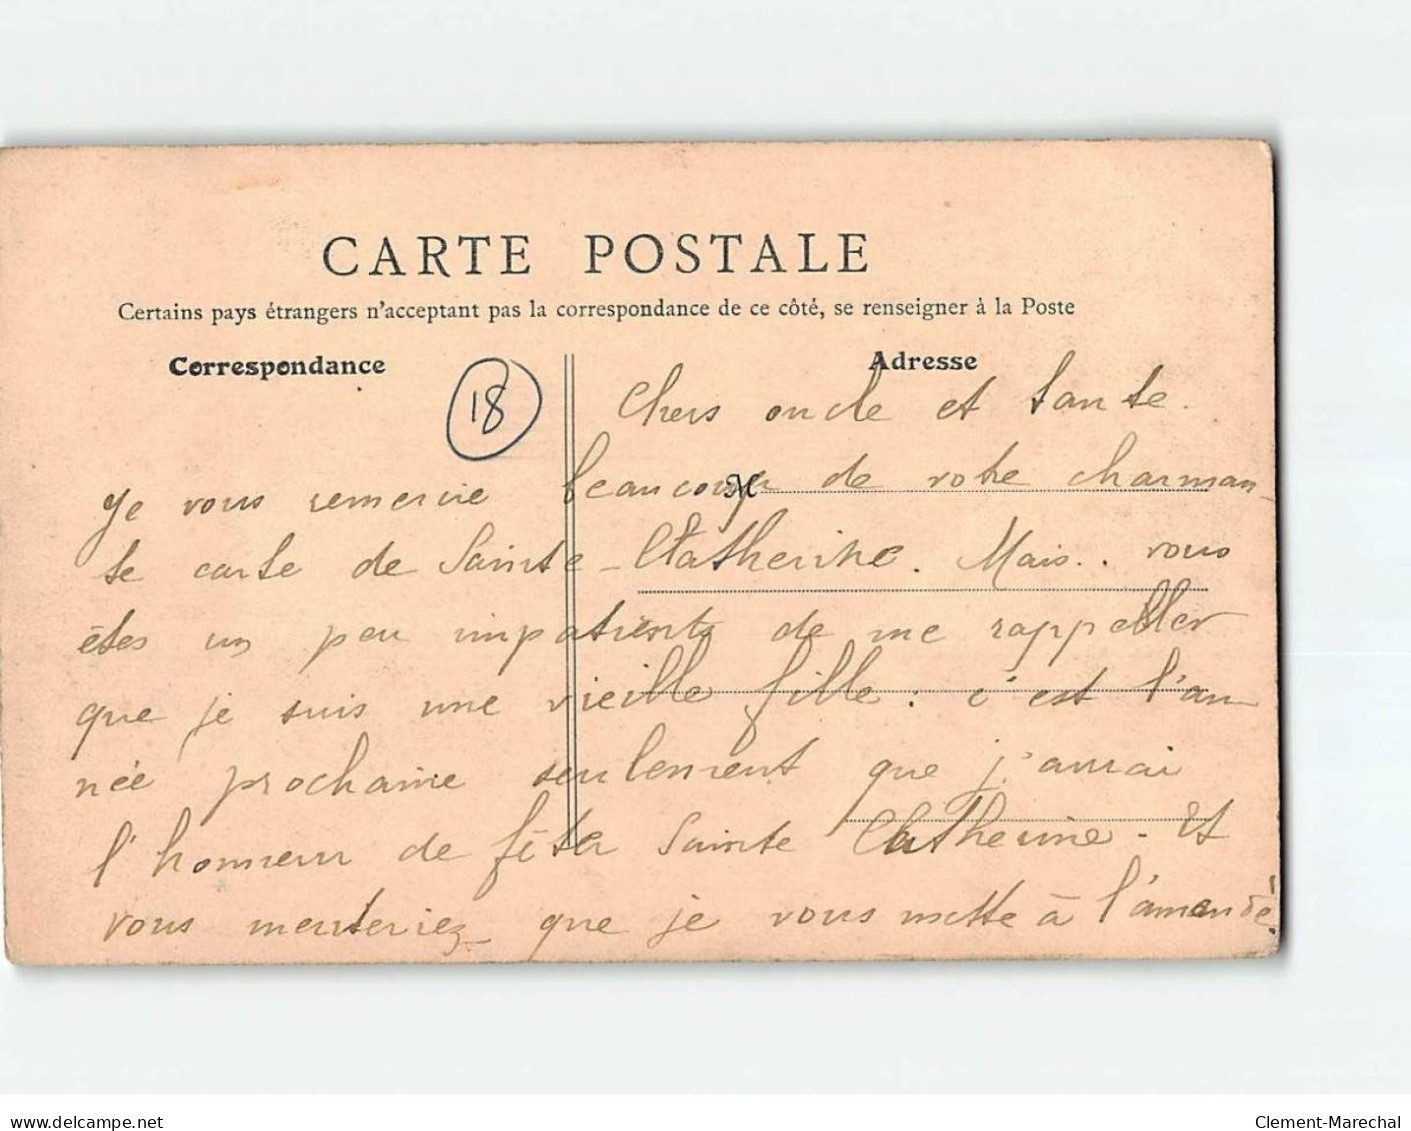 CARTE POSTALE
Certains pays étrangers n'acceptant pas la correspondance de ce côté, se renseigner à la Poste
Correspondance
Adresse
18
Chers oncle et tante.
Je vous remercie beaucoup de votre charman-
te carte de Sainte-Catherine. Mais.. vous
êtes un peu impatients de me rappeller
que je suis une vieille fille : c'est l'an-
née prochaine seulement que j'aurai
l'honneur de fêter Sainte Catherine. Et
vous menteriez que je vous mette à l'amende.
delcampe.net
Clement-Marechal